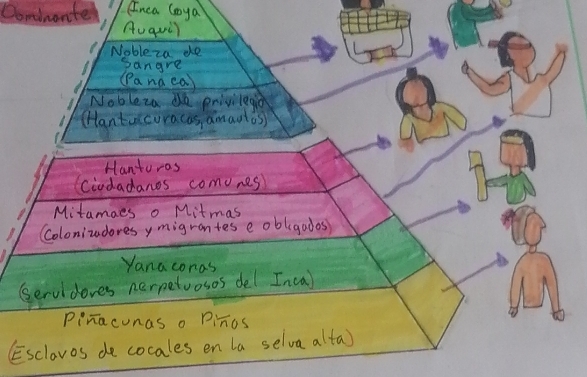 Dominante
(Inca Coya
Auqui)
Nobleza de
Sangre
(Panaca)
Nobleza de privilegio
(Hantucuracas, amautos)
Hanturas
(Ciudadanos comunes)
Mitamaes o Mitmas
(Colonizadores y migrantes e obligados)
Yanaconas
(Servidores perpetuosos del Inca)
Piñacunas o Piños
(Esclavos de cocales en la selva alta)